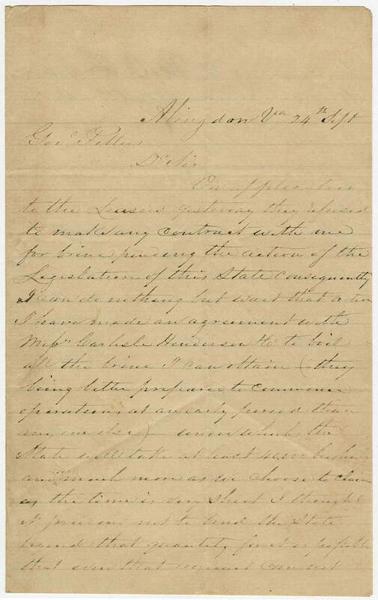 Abingdon Va 24th Sept
Gov Pettus
Dr Sir
On application
to the Lessees yesterday they refused
to make any contract with me
for brine, pending the action of the
Legislature of this State Consequently
I can do nothing but wait that action
I have made an agreement with
Carlisle Henderson to boil
all the brine I can obtain (they
being better prepared to commence
operations at an early period than
any one else) under which the
State will take at least bushels
and as much more as we choose to claim
as the time is so short I thought
it prudent not to bind the State
beyond that quantity for it is probable
that even that amount can not